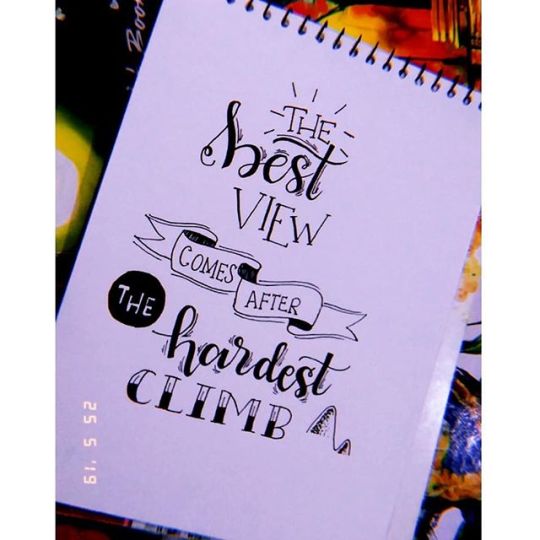 THE
best
VIEW
COMES AFTER
THE
hardest
CLIMB
25 5 '19